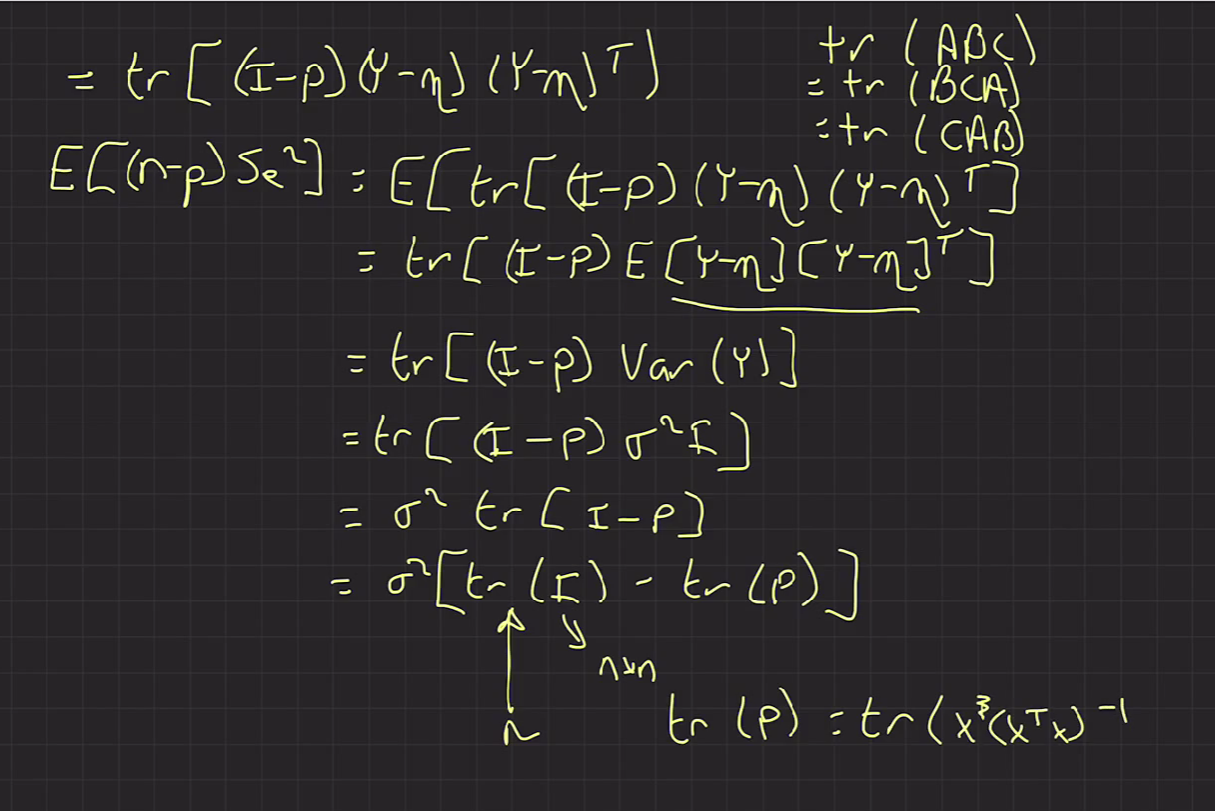 = tr[(I-P)(Y-η)(Y-η)ᵀ)
tr (ABC)
= tr (BCA)
= tr (CAB)
E[(n-p)Se²] = E[tr[(I-P)(Y-η)(Y-η)ᵀ]
= tr[(I-P)E[Y-η][Y-η]ᵀ]
= tr[(I-P) Var(Y)]
= tr[(I-P)σ²I]
= σ² tr[I-P]
= σ²[tr(I) - tr(P)]
n×n
n
tr(P) = tr(X(XᵀX)⁻¹